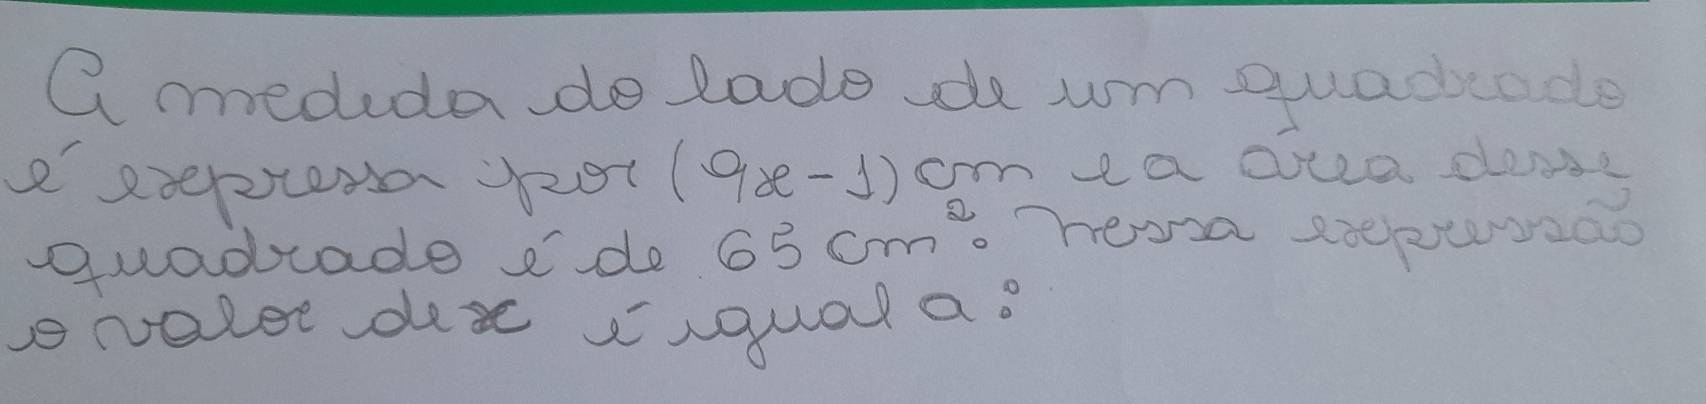 A medida do lado de um quadrado
é expressa por (9x-1) cm e a área desse
quadrado é de 65 cm². nessa expressão
o valor de x é igual a: